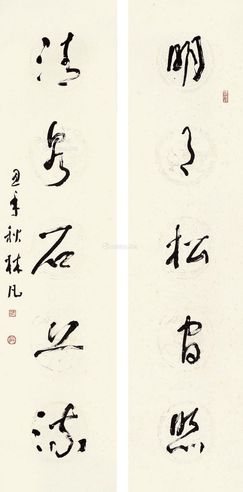 明月松间照
清泉石上流
丑年秋林凡